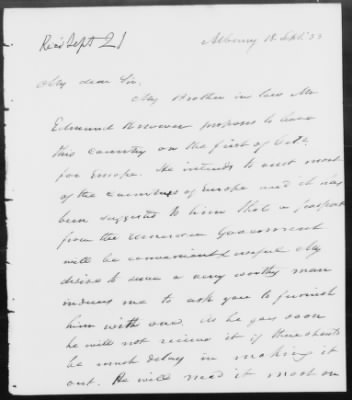 Rec'd Sept 21
Albany 18 Sept. 53
My dear Sir.
My Brother in law Mr
Edmund proposes to leave
this country on the first of Octr
for Europe. He intends to visit most
of the Countries of Europe and it has
been suggested to him that a passport
from the American Government
will be convenient & useful. My
desire to serve a very worthy man
induces me to ask you to furnish
him with one. As he goes soon
he will not receive it if there should
be much delay in making it
out. He will need it most on